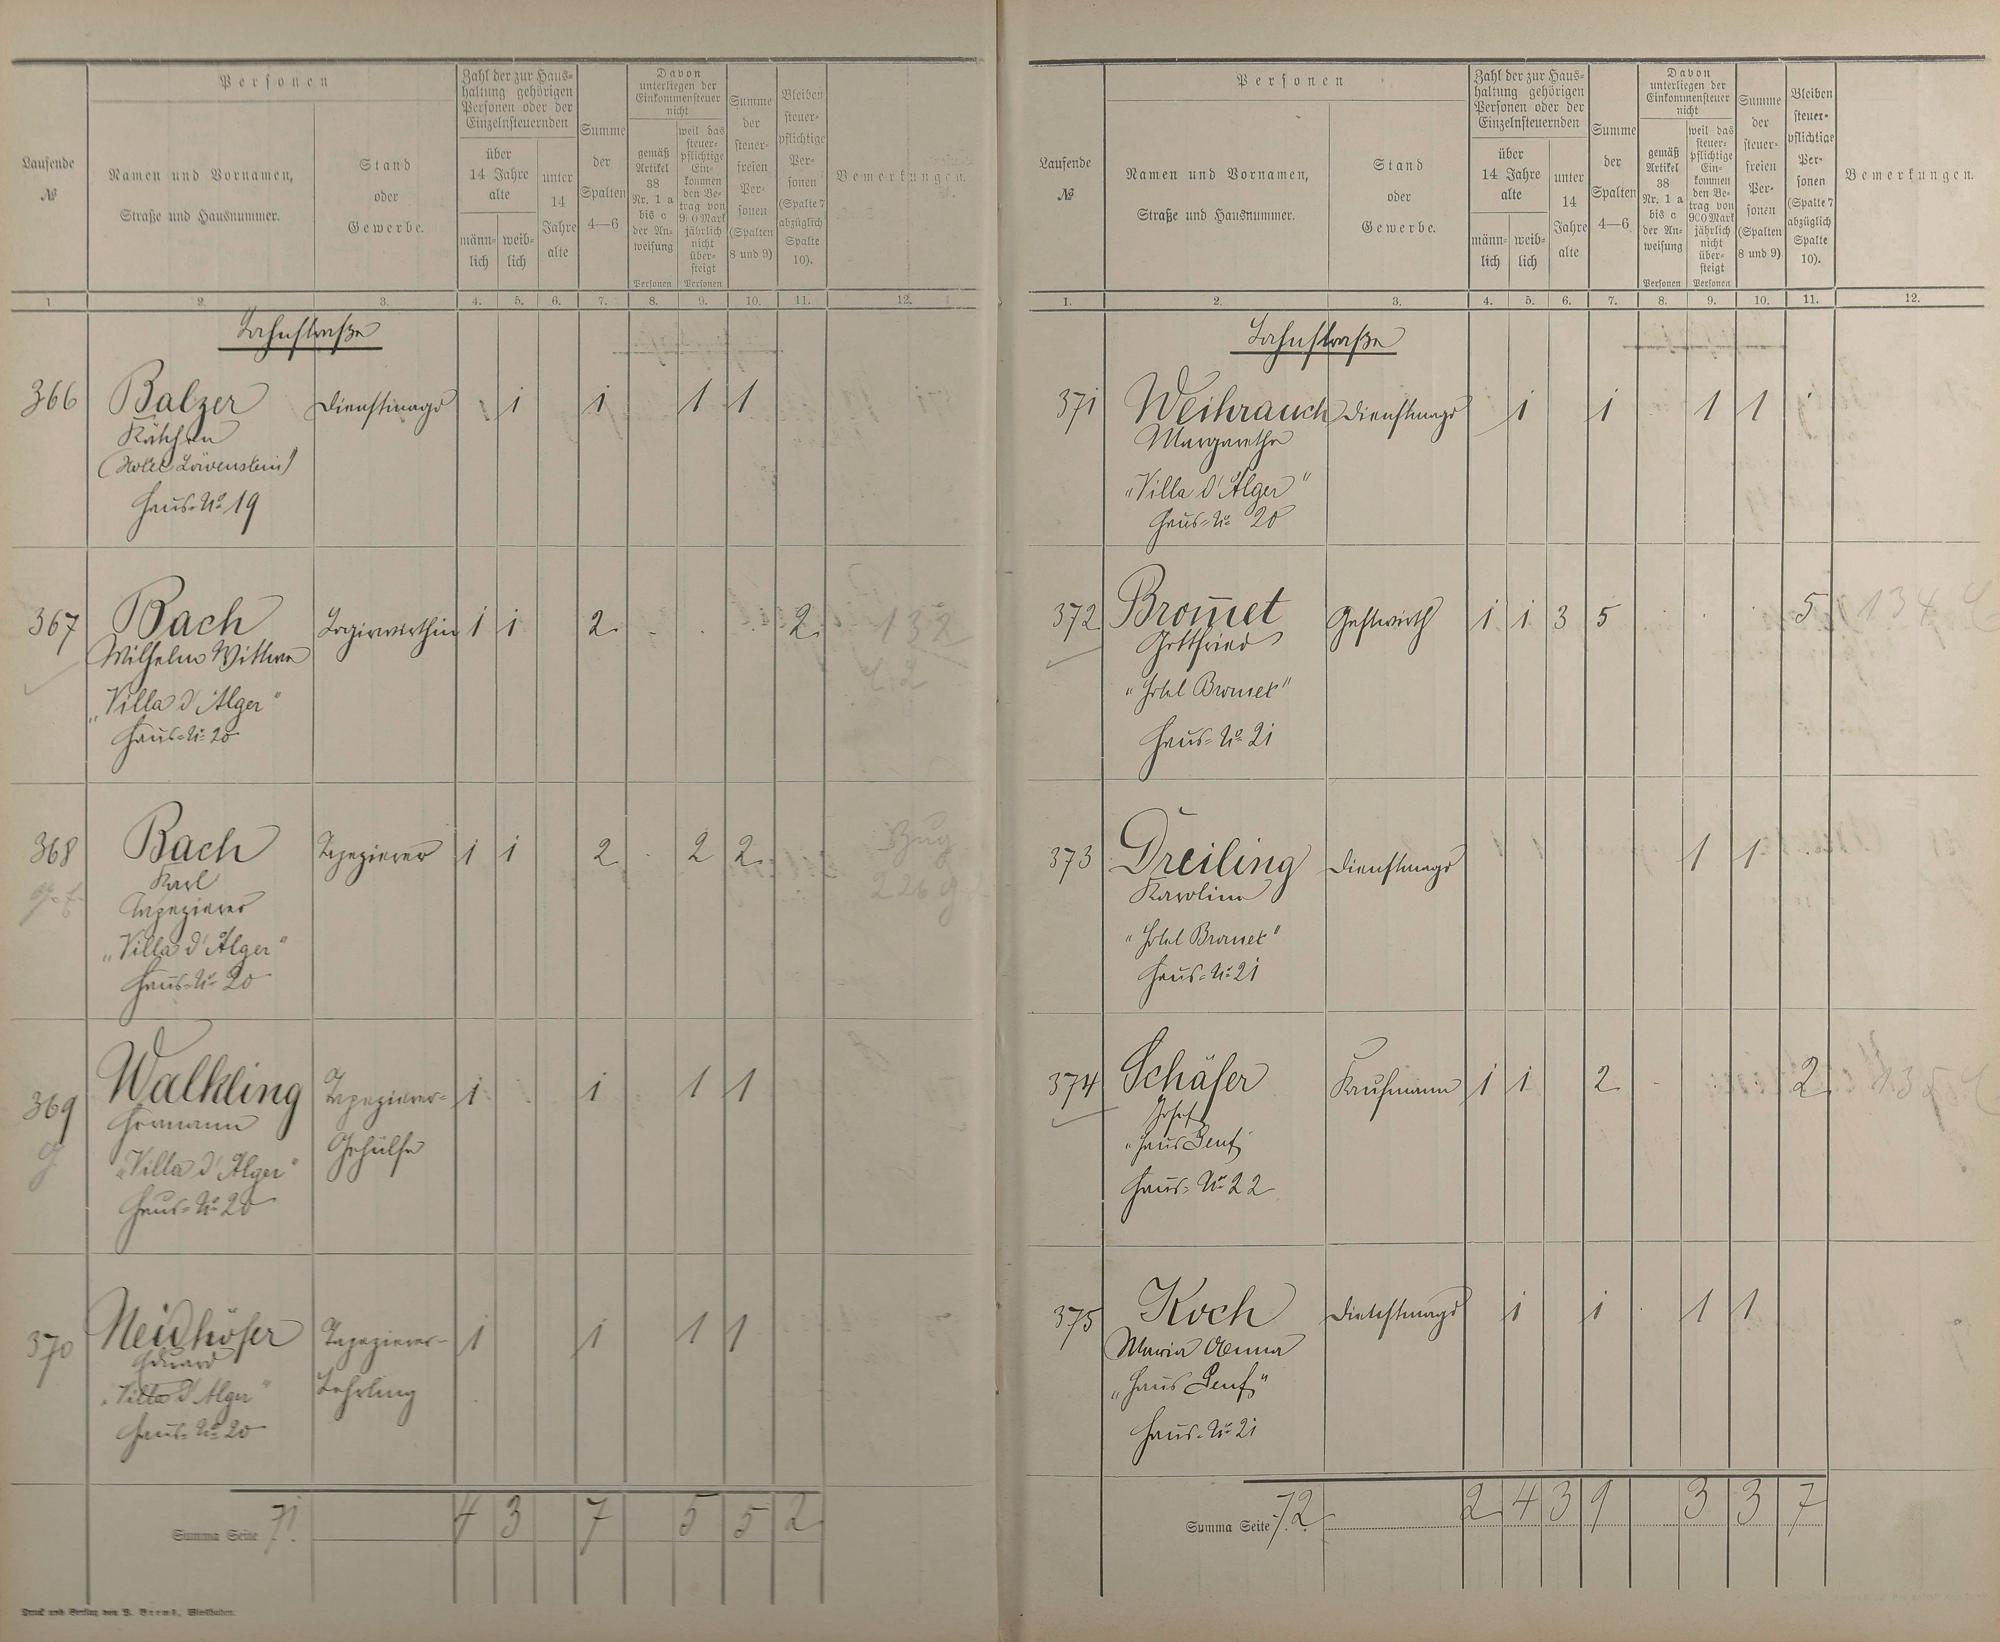 Personen
Laufende
№
Namen und Vornamen,
Straße und Hausnummer.
Stand
oder
Gewerbe.
Zahl der zur Haus-
haltung gehörigen
Personen oder der
Einzelnsteuernden
über
14 Jahre
alte
männ-
lich
weib-
lich
unter
14
Jahre
alte
Summe
der
Spalten
4—6
Davon
unterliegen der
Einkommensteuer
nicht
gemäß
Artikel
38
Nr. 1 a
bis c
der An-
weisung
Personen
weil das
steuer-
pflichtige
Ein-
kommen
den Be-
trag von
900 Mark
jährlich
nicht
über-
steigt
Personen
Summe
der
steuer-
freien
Per-
sonen
(Spalten
8 und 9)
Bleiben
steuer-
pflichtige
Per-
sonen
(Spalte 7
abzüglich
Spalte
10).
Bemerkungen.
1. 2. 3. 4. 5. 6. 7. 8. 9. 10. 11. 12.
Lahnstraße
366 Balzer Dienstmagd 1 1 1 1
Käthchen
(Hotel Löwenstein)
Haus-No 19
367 Bach Logirwirthin 1 1 2 2 132
Wilhelm Wittwe
"Villa d'Alger"
Haus-No 20
368 Bach Tapezierer 1 1 2 2 2 Zug
Karl 226
Tapezierer
"Villa d'Alger"
Haus-No 20
369 Walkling Tapezierer- 1 1 1 1
Hermann Gehülfe
"Villa d'Alger"
Haus-No 20
370 Neidhöfer Tapezierer- 1 1 1 1
Eduard Lehrling
"Villa d'Alger"
Haus-No 20
Summa Seite 71. 4 3 7 5 5 2
Druck und Verlag von P. Plaum, Wiesbaden.
Personen
Laufende
№
Namen und Vornamen,
Straße und Hausnummer.
Stand
oder
Gewerbe.
Zahl der zur Haus-
haltung gehörigen
Personen oder der
Einzelnsteuernden
über
14 Jahre
alte
männ-
lich
weib-
lich
unter
14
Jahre
alte
Summe
der
Spalten
4—6
Davon
unterliegen der
Einkommensteuer
nicht
gemäß
Artikel
38
Nr. 1 a
bis c
der An-
weisung
Personen
weil das
steuer-
pflichtige
Ein-
kommen
den Be-
trag von
900 Mark
jährlich
nicht
über-
steigt
Personen
Summe
der
steuer-
freien
Per-
sonen
(Spalten
8 und 9)
Bleiben
steuer-
pflichtige
Per-
sonen
(Spalte 7
abzüglich
Spalte
10).
Bemerkungen.
1. 2. 3. 4. 5. 6. 7. 8. 9. 10. 11. 12.
Lahnstraße
371 Weihrauch Dienstmagd 1 1 1 1
Margarethe
"Villa d'Alger"
Haus-No 20
372 Brom̅et Gastwirth 1 1 3 5 5 134
Gottfried
"Hotel Bromet"
Haus-No 21
373 Dreiling Dienstmagd 1 1
Karoline
"Hotel Bromet"
Haus-No 21
374 Schäfer Kaufmann 1 1 2 2 135
Josef
"Haus Genf"
Haus-No 22
375 Koch Dienstmagd 1 1 1 1
Maria Anna
"Haus Genf"
Haus-No 21
Summa Seite 72. 2 4 3 9 3 3 7